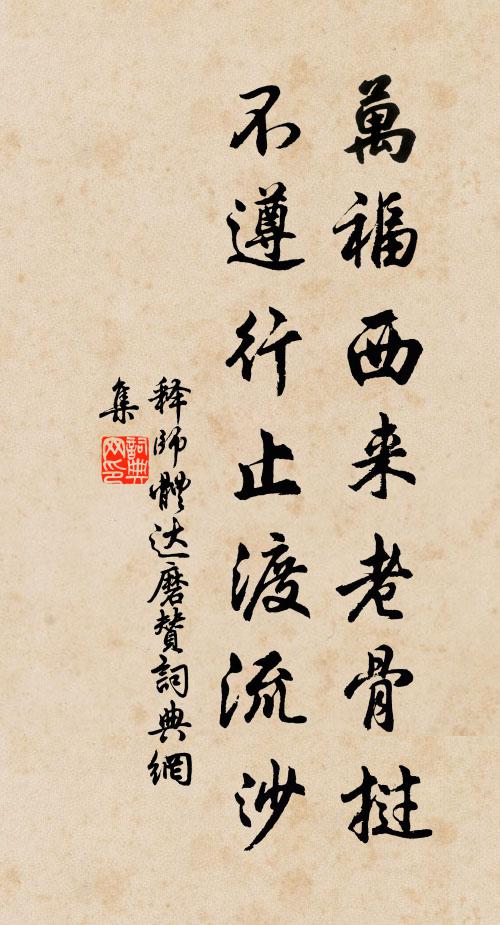 萬福西来老骨挝
不遵行止渡流沙
释師體达磨贊詞典網
集
詞典網印